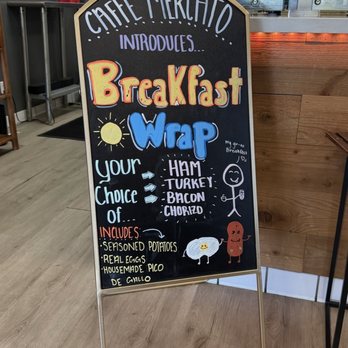 CAFFÈ MERCATO
INTRODUCES...
BreaKfast
Wrap
your
Choice
of...
HAM
TURKEY
BACON
CHORIZO
my go-to
Breakfast
INCLUDES
• SEASONED POTATOES
• REAL EGGS
• HOUSEMADE PICO
DE GALLO